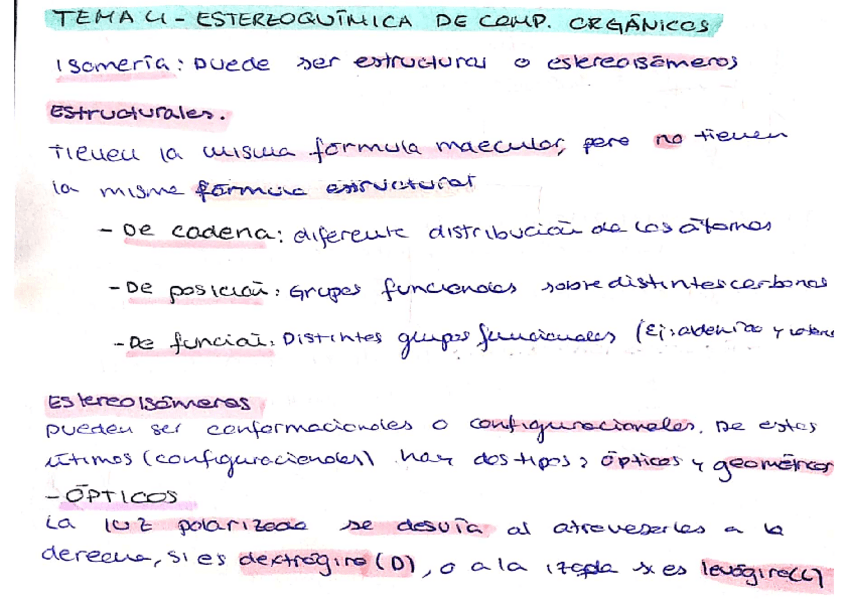 TEMA 4 - ESTEREOQUÍMICA DE COMP. ORGÁNICOS
Isomería: Puede ser estructural o estereoisómeros
Estructurales.
Tienen la misma fórmula molecular, pero no tienen
la misma fórmula estructural
- De cadena: diferente distribución de los átomos
- De posición: Grupos funcionales sobre distintos carbonos
- De función: Distintos grupos funcionales (Ej: aldehído y cetona
Estereoisómeros
Pueden ser conformacionales o configuracionales. De estos
últimos (configuracionales) hay dos tipos: ópticos y geométricos
- ÓPTICOS
La luz polarizada se desvía al atravesarlos a la
derecha, si es dextrógiro (D), o a la izqda si es levógiro (L)